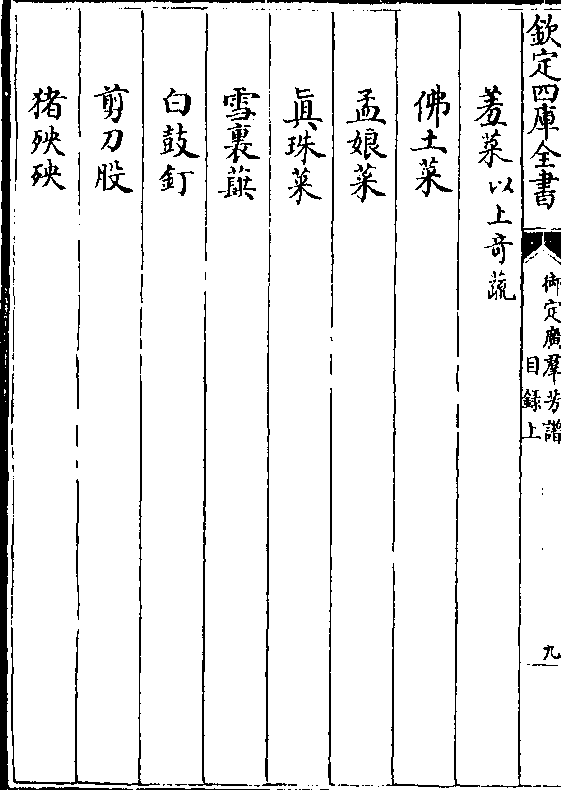 欽定四庫全書
御定廣羣芳譜
目錄上
九
蓊菜以上奇蔬
佛土菜
孟娘菜
眞珠菜
雪裏蕻
白鼓釘
剪刀股
猪殃殃